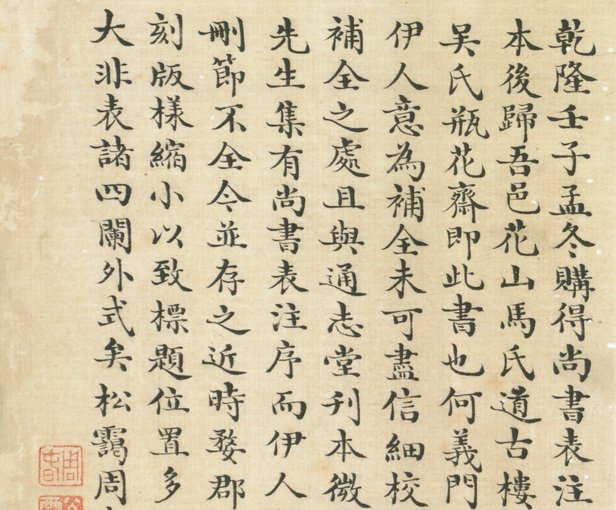 乾隆壬子孟冬購得尚書表注
本後歸吾邑花山馬氏道古樓
吳氏瓶花齋即此書也何義門
伊人意為補全未可盡信細校
補全之處且與通志堂刊本微
先生集有尚書表注序而伊人
刪節不全今並存之近時婺郡
刻版樣縮小以致標題位置多
大非表諸四闌外式矣松靄周